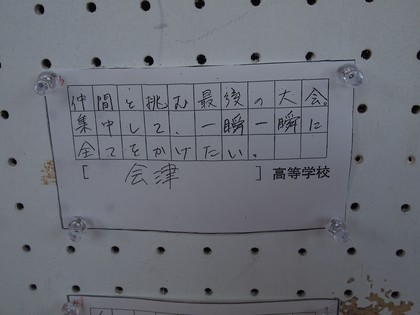 仲間と挑む最後の大会。
集中して、一瞬一瞬に
全てをかけたい。
[ 会津 ] 高等学校